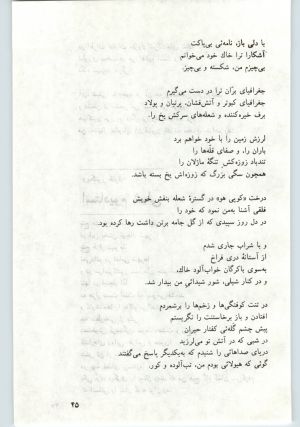 با دلی باز، نامه‌ئی بی‌پاکت
آشکارا ترا خاك خود می‌خوانم
بی‌چیزم من، شکسته و بی‌چیز.
جغرافیای برّان ترا در دست می‌گیرم
جغرافیای کبوتر و آتش‌فشان، پرنیان و پولاد
برف خیره‌کننده و شعله‌های سرکش یخ را.
لرزش زمین را با خود خواهم برد
باران را، و صفای قله‌ها را
تندباد زوزه‌کش تنگهٔ ماژلان را
همچون سگی بزرگ که زوزه‌اش یخ بسته باشد.
درخت «کویی هو» در گسترهٔ شعله بنفش خویش
فلقی آشنا به‌من نمود که خود را
در دل روز سپیدی که از گل جامه برتن داشت رها کرده بود.
و با شراب جاری شدم
از آستانهٔ دری فراخ
به‌سوی باکرگان خواب‌آلود خاك،
و در کنار شیلی، شور شیدائی من بیدار شد.
در تنت کوفتگی‌ها و زخم‌ها را برشمردم
افتادن و باز برخاستنت را نگریستم
پیش چشم گله‌ئی کفتار حیران
در شبی که در آتش نو می‌لرزید
دریای صداهائی را شنیدم که به‌یکدیگر پاسخ می‌گفتند
گوئی که هیولائی بودم من، تب‌آلوده و کور.
۴۵